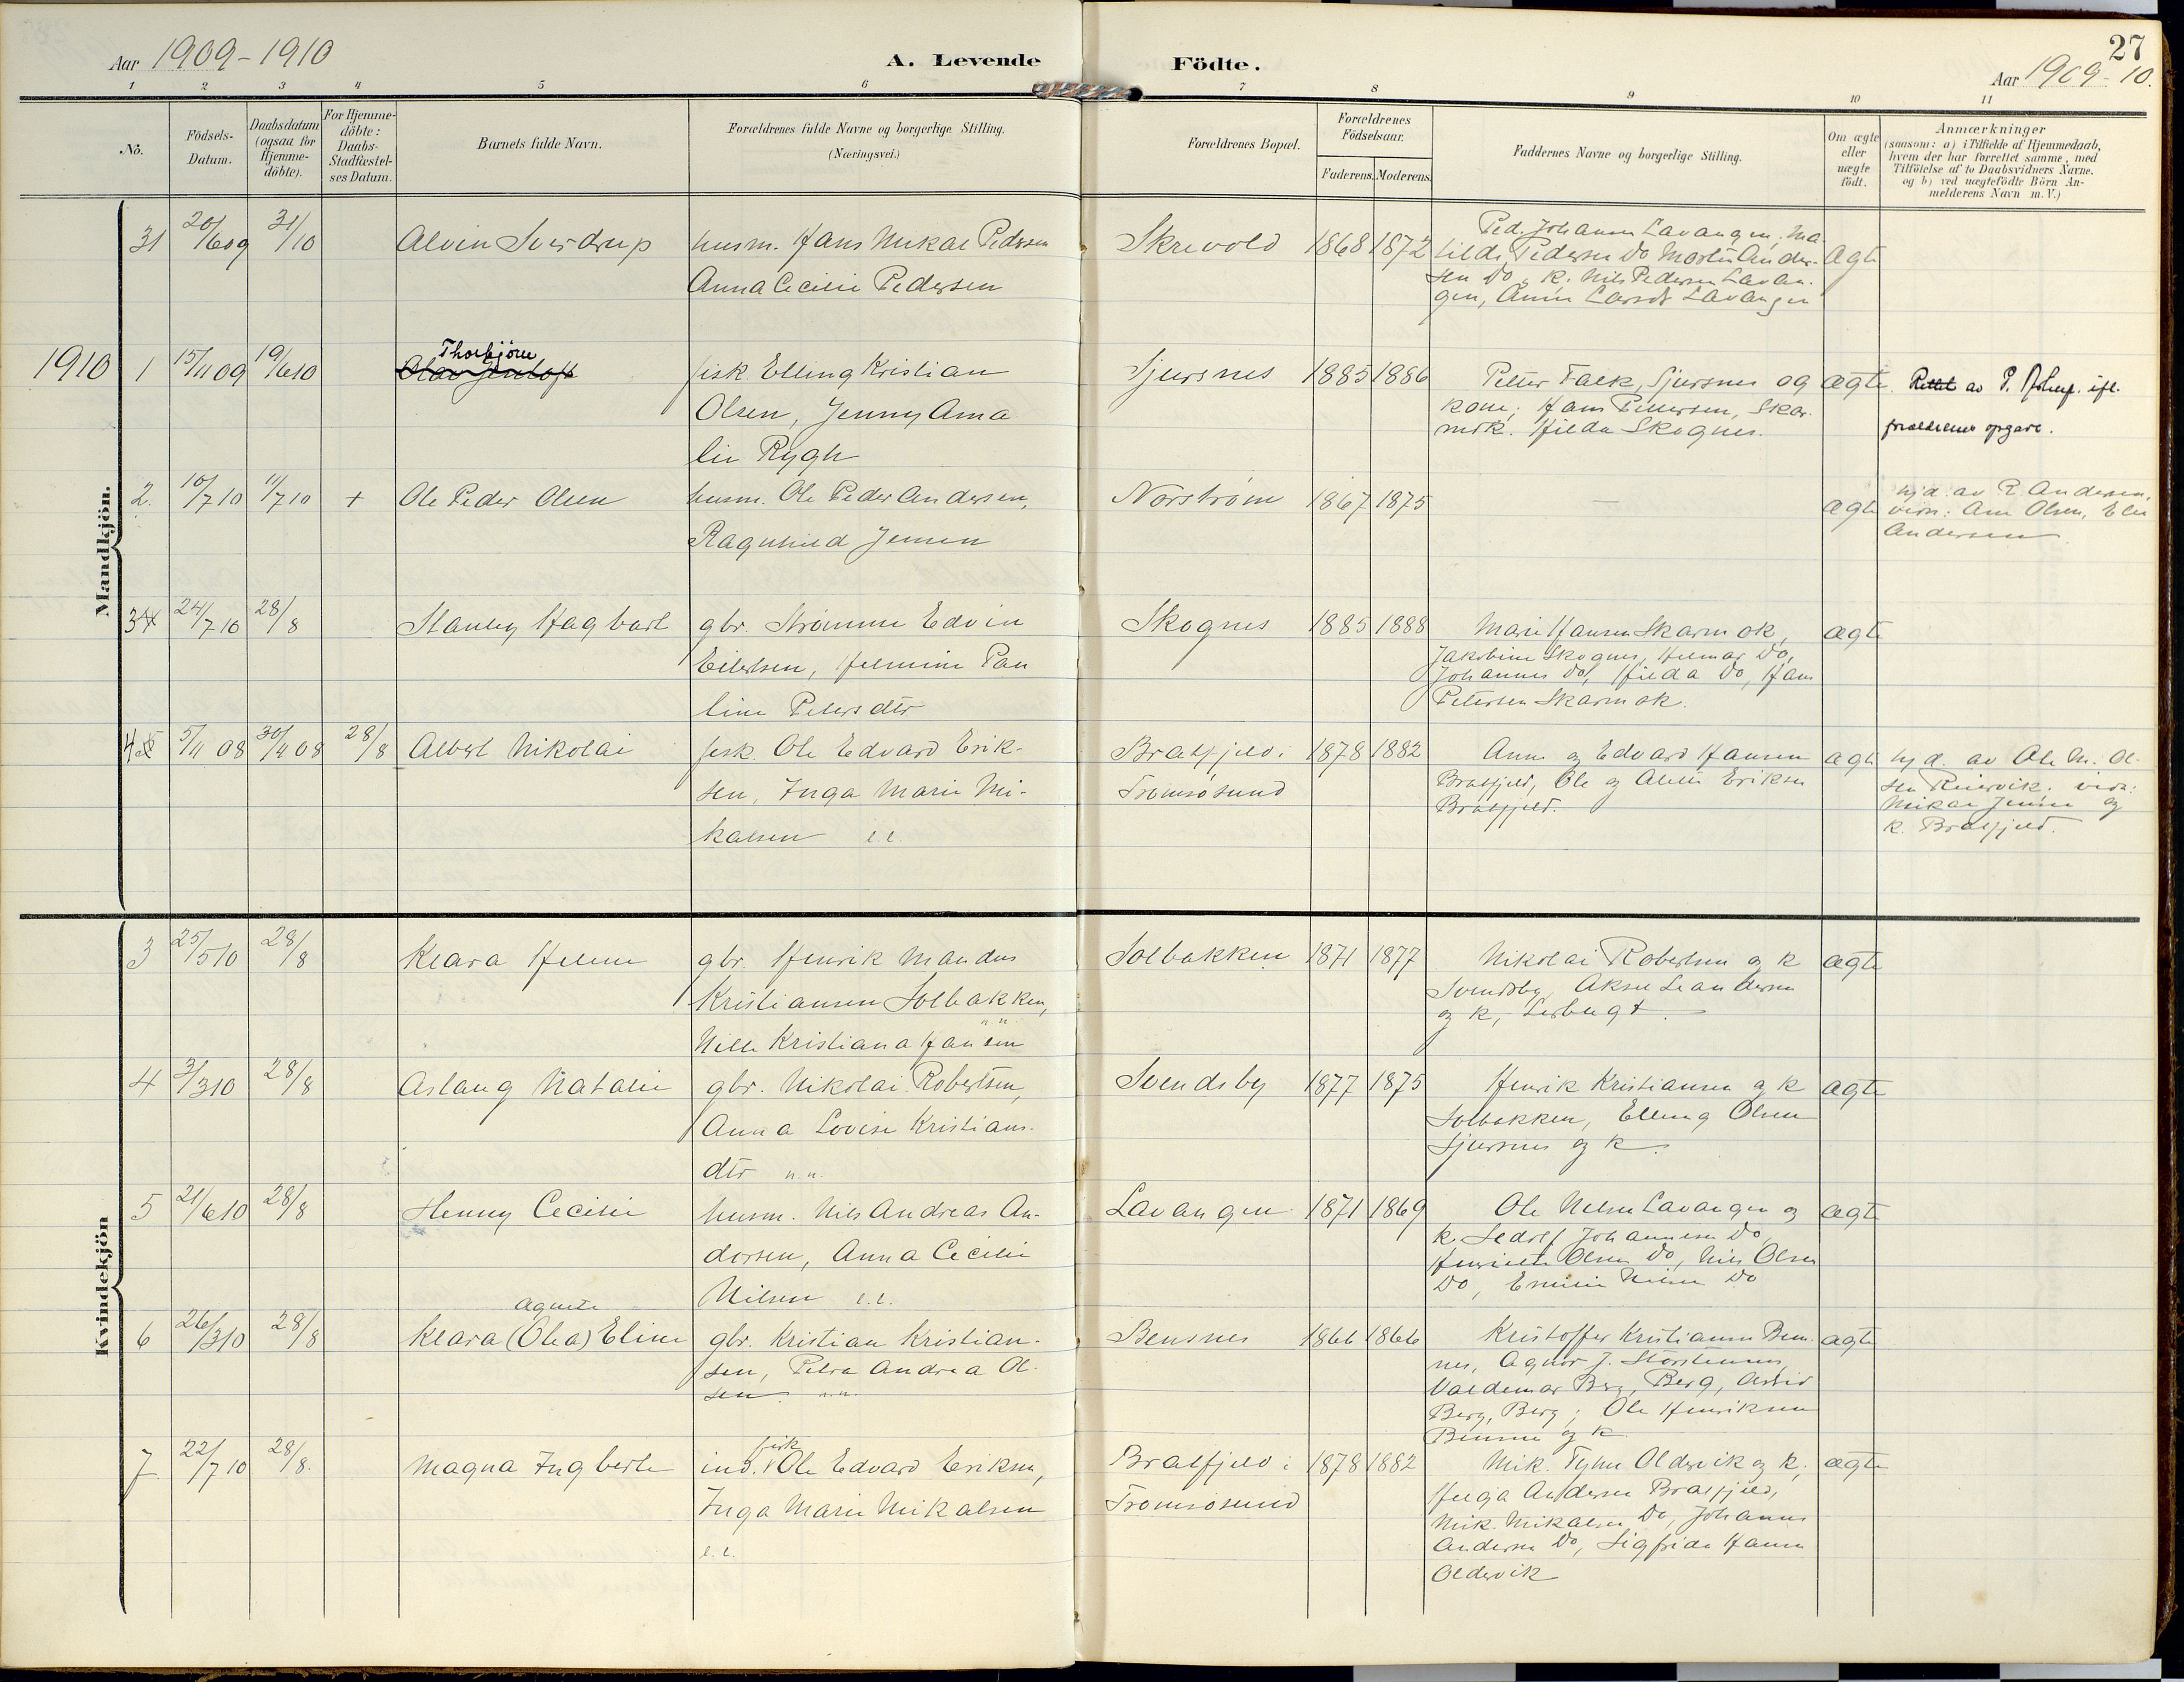 Aar 1909-1910
A. Levende
Födte.
27
Aar 1909-10.
1 2 3 4 5 6 7 8 9 10 11
No.
Födsels-Datum.
Daabsdatum (ogsaa for Hjemme-döbte).
For Hjemme-döbte: Daabs-Stadfæstel-ses Datum.
Barnets fulde Navn.
Forældrenes fulde Navne og borgerlige Stilling. (Næringsvei.)
Forældrenes Bopæl.
Forældrenes Födselsaar.
Faderens. Moderens.
Faddernes Navne og borgerlige Stilling.
Om ægte eller uægte födt.
Anmærkninger
(saasom: a) i Tilfælde af Hjemmedaab, hvem der har forrettet samme, med Tilföielse af to Daabsvidners Navne. og b) ved uægtefödte Börn An-melderens Navn m. V.)
Mandkjön.
31 20/6 09 31/10 Alvin Sverdrup husm. Hans Mikal Pedersen Skrevold 1868 1872 Ped. Johansen Lavangen, Ma-
Anna Cecilie Pedersen
tilde Pedersen Do Martin Ander- ægte
sen Do, K. Nils Pedersen Lavan-
gen, Anna Larsdt Lavangen
1910 1 15/11 09 19/6 10 Thorbjörn fisk. Elling Kristian Sjursnes 1885 1886 Petter Falk, Sjursnes og ægte
Olsen, Jenny Ama
lie Rygh
kone; Hans Pettersen, Skar-
mok. Hilda Skognes.
Rettet av P. ifl.
forældrenes opgave.
2. 10/7 10 11/7 10 + Ole Peder Olsen husm. Ole Peder Andersen, Norstrøm 1867 1875 — ægte
Ragnhild Jensen
hjd. av R. Andersen,
vidn: Ane Olsen, Elen
Andersen
3 24/7 10 28/8 Stanley Hagbart gbr. Strømme Edvin Skognes 1885 1888 Marie Hansen Skarmok, ægte
Eilertsen, Helmine Pau
line Petersdtr
Jakobine Skognes, Hilmar Do,
Johannes Do, Hilda Do, Hans
Petersen Skarmok.
4 5/11 08 30/11 08 28/8 Albert Nikolai fisk. Ole Edvard Erik- Bratfjeld i 1878 1882 Anne og Edvard Hansen ægte
sen, Inga Marie Mi-
kalsen l.l.
Tromsøsund
Bratfjeld, Ole og Aletta Eriksen
Bratfjeld.
hjd. av Ole M. Ol-
sen Reiervik. vidn:
Mikal Jensen og
k. Bratfjeld.
Kvindekjön
3 25/5 10 28/8 Klara Helene gbr. Henrik Mandus Solbakken 1871 1877 Nikolai Robertsen og k ægte
Kristiansen Solbakken,
Nille Kristiana Hansen n.n.
Svendsby, Aksel Leandersen
og k, Lerbugt
4 3/3 10 28/8 Aslaug Natalie gbr. Nikolai Robertsen, Svendsby 1877 1875 Henrik Kristiansen og k ægte
Anna Lovise Kristians-
dtr n.n.
Solbakken, Elling Olsen
Sjursnes og k.
5 21/6 10 28/8 Henny Cecilie husm. Nils Andreas An- Lavangen 1871 1869 Ole Nilsen Lavangen og ægte
dersen, Anna Cecilie
Nilsen l.l.
k. Sedolf Johannesen Do,
Henriette Olsen Do, Nils Olsen
Do, Emilie Nilsen Do
6 26/3 10 28/8 Klara (Olea) Agnete Eline gbr. Kristian Kristian- Bensnes 1866 1866 Kristoffer Kristiansen Bens- ægte
sen, Petra Andrea Ol-
sen n.n.
nes, Agnor J. Storstennes,
Valdemar Berg, Berg, Astrid
Berg, Berg; Ole Henriksen
Bensnes og k
7 22/7 10 28/8. Magna Ingberte ind. fisk Ole Edvard Eriksen, Bratfjeld i 1878 1882 Mik. Oldervik og k, ægte
Inga Marie Mikalsen
l.l.
Tromsøsund
Helga Andersen Bratfjeld,
Mik. Mikalsen Do, Johannes
Andersen Do, Sigfrida Hansen
Oldervik